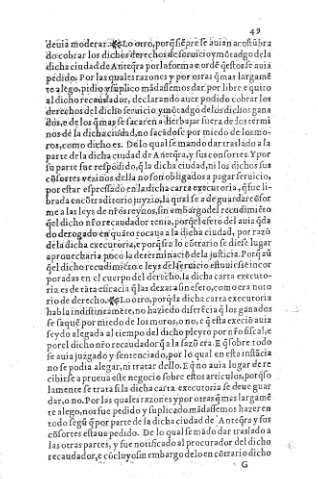 49
deuia moderar. ※ Lo otro, porq̃ siẽpre se auiã acostũbra
do cobrar los dichos derechos de seruicio y mõtadgo dela
dicha ciudad de Anteq̃ra por la forma e ordẽ q̃ estos se auia
pedido. Por las quales razones y por otras q̃ mas largamẽ
te alego, pidio y suplico mãdassemos dar por libre e quito
al dicho recaudador, declarando auer podido cobrar los
derechos del dicho seruicio y mõtadgo delos dichos gana
dos, e de los q̃ mas se sacaren a Heruajar fuera de los termi
nos de la dicha ciudad, no sacãdose por miedo de los mo-
ros, como dicho es. De lo qual se mandó dar traslado a la
parte de la dicha ciudad de Anteq̃ra, y sus consortes. Y por
su parte fue respõdido, q̃ la dicha ciudad, ni los dichos sus
cõsortes vezinos della no son obligados a pagar seruicio,
por estar espressado en la dicha carta executoria, q̃ fue li-
brada en cõtraditorio juyzio, la qual se a de guardar cõfor
me a las leyes de nr̃os reynos, sin embargo del recudimiẽto
q̃ el dicho nr̃o recaudador tenia, porq̃ el a esto del auia q̃da
do derogado en quãto tocaua a la dicha ciudad, por razõ
de la dicha executoria, e porq̃ si a lo cõtrario se diese lugar
aprouecharia poco la determinaciõ de la justicia. Porq̃ auñ
q̃ el dicho recudimiẽto e leyes del seruicio estuuiessẽ incor
poradas en el cuerpo del derecho, la dicha carta executo-
ria es de tãta eficacia q̃ las dexara sin efeto, como era noto
rio de derecho. ※ Lo otro, porq̃ la dicha carta executoria
habla indistintamẽte, no haziẽdo diferẽcia q̃ los ganados
se saquẽ por miedo de los moros, o no, e q̃ esta execiõ auia
seydo alegada al tiempo del dicho pleyto por nr̃o fiscal, e
por el dicho nr̃o recaudador q̃ a la sazõ era. E q̃ sobre todo
se auia juzgado y sentenciado, por lo qual en esta instãcia
no se podia alegar, ni tratar dello. E q̃ no auia lugar de re
cibirse a prueua este negocio sobre estos articulos, porq̃ so
lamente se trata si la dicha carta executoria se deue guar
dar, o no. Por las quales razones y por otras q̃ mas largamẽ
te alego, nos fue pedido y suplicado mãdassemos hazer en
todo segũ q̃ por parte de la dicha ciudad de Anteq̃ra y sus
cõsortes estaua pedido. De lo qual se mãdo dar traslado a
las otras partes, y fue notificado al procurador del dicho
recaudador, e cõcluyo sin embargo delo en cõtrario dicho
G